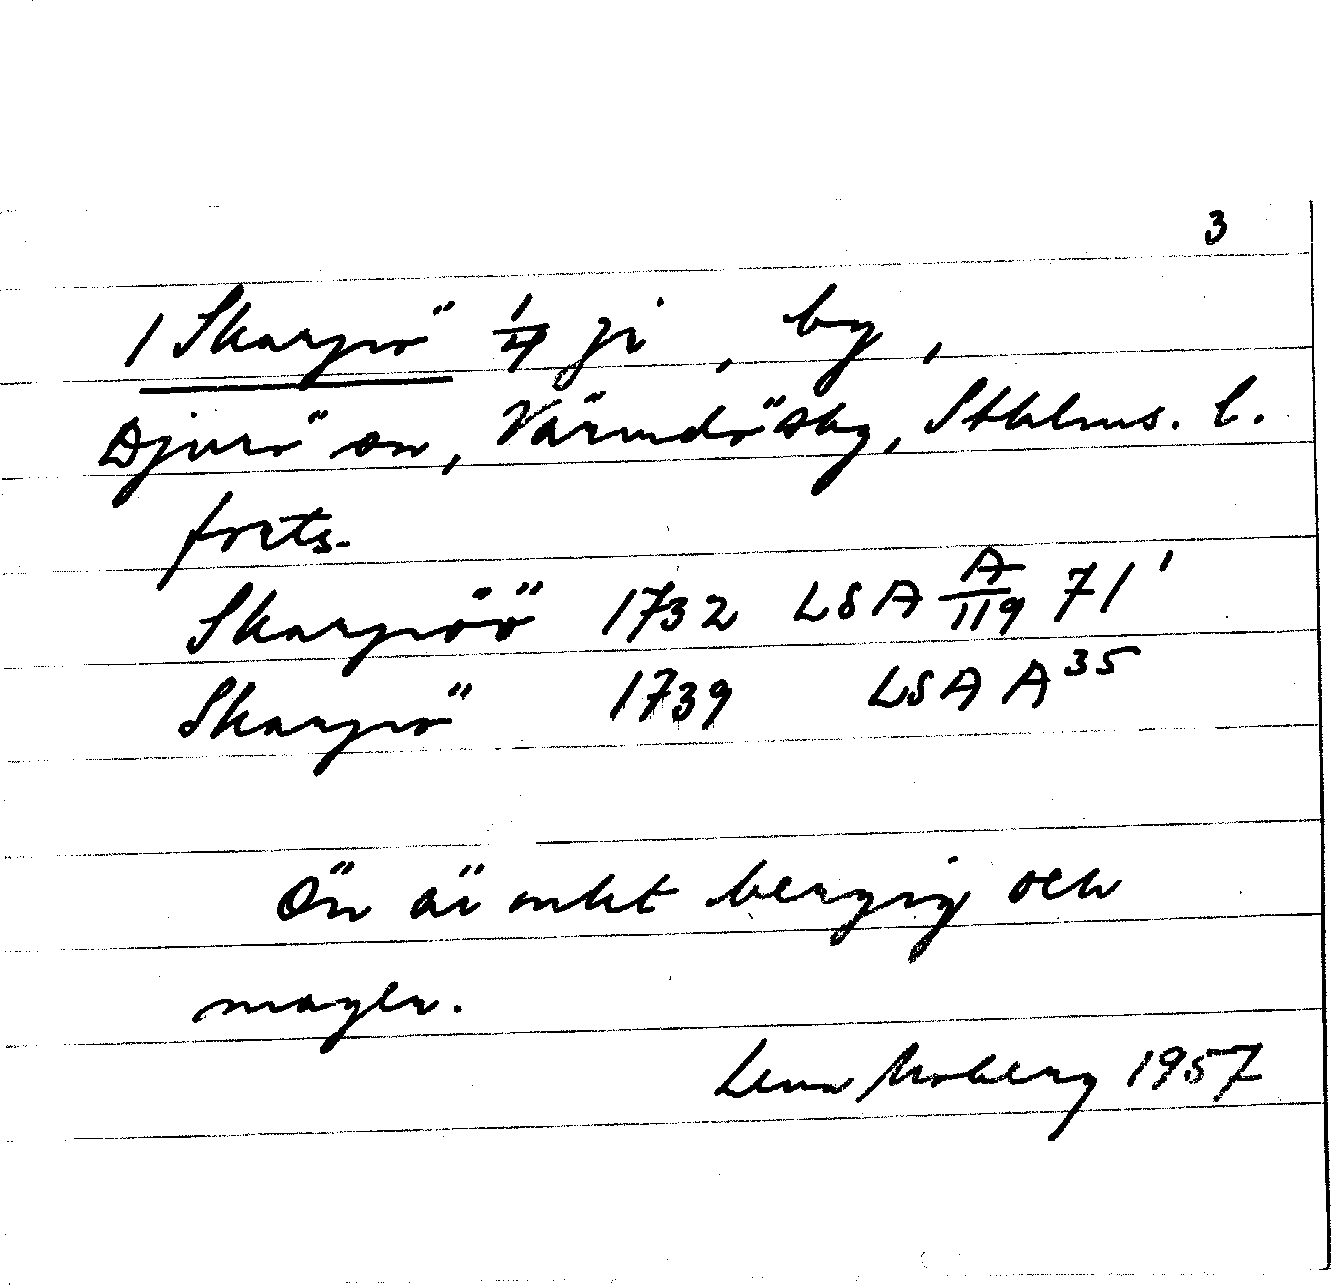 3
1 Skarpö 1/4 ji, by,
Djurö sn, Värmdö sky, Sthlms. l.
forts.
Skarpöö 1732 LSA A/119 71'
Skarpö 1739 LSA A 35
Ön är mkt bergig och
mager.
Lena Moberg 1957